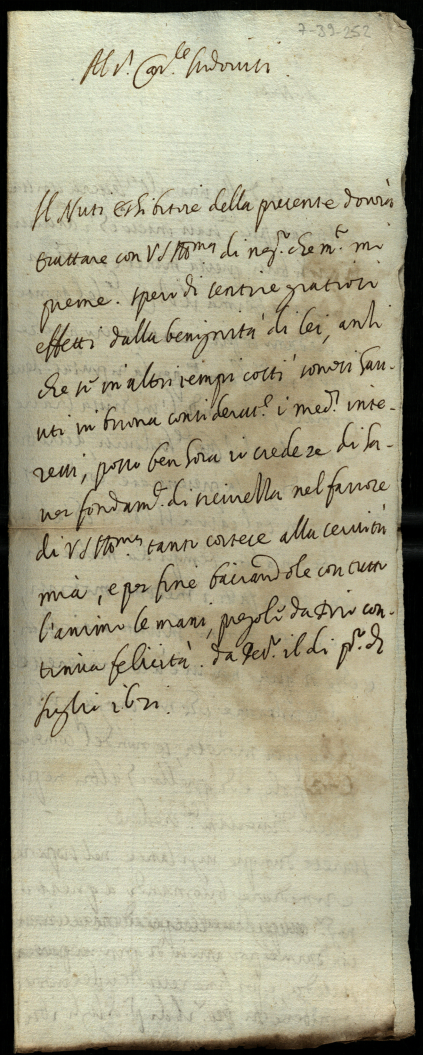 7-39-252
Al S.r Car.le Ludovisi.
Il Nuti eshibitore della presente dovrà
trattare con VS Ill.ma di neg.o che m.o mi
preme. spero di sentire gratiosi
effetti dalla benignità di lei, anzi
che se in altri tempi così sono si hau-
uti in buona considerat.e i med.i inte-
ressi, posso ben hora io credere di ha-
ver fondam.to di vicinella nel favore
di VS Ill.ma tanto cortese alla servitù
mia, e per fine baciandole con tutto
l'animo le mani, pregole da Dio con-
tinua felicità. da il di p.o di
luglio 1621.